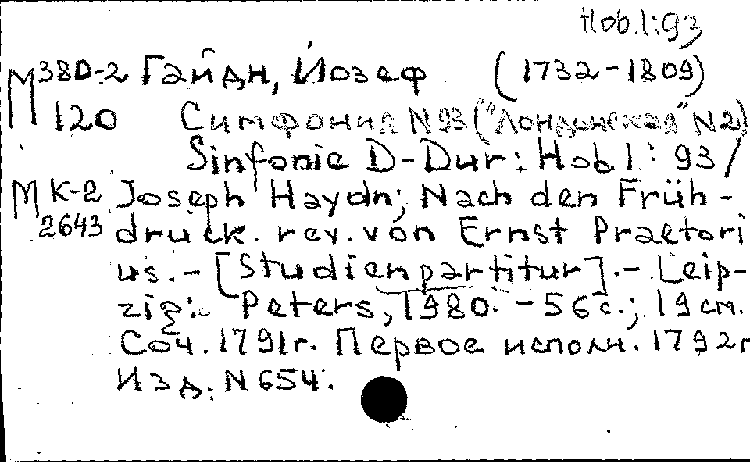 Hob.I:93
М38D-2 Гайдн, Йозеф (1732-1809)
120 Симфония N93 ("Лондонская" N2)
Sinfonie D-Dur: Hob I: 93/
М К-2 Joseph Haydn; Nach den Früh-
2643 druck. rev. von Ernst Praetori
us. - [Studienpartitur]. - Leip-
zig: Peters, 1980. - 56 с.; 19 см.
Соч. 1791г. Первое исполн. 1792г
Изд. N 654.